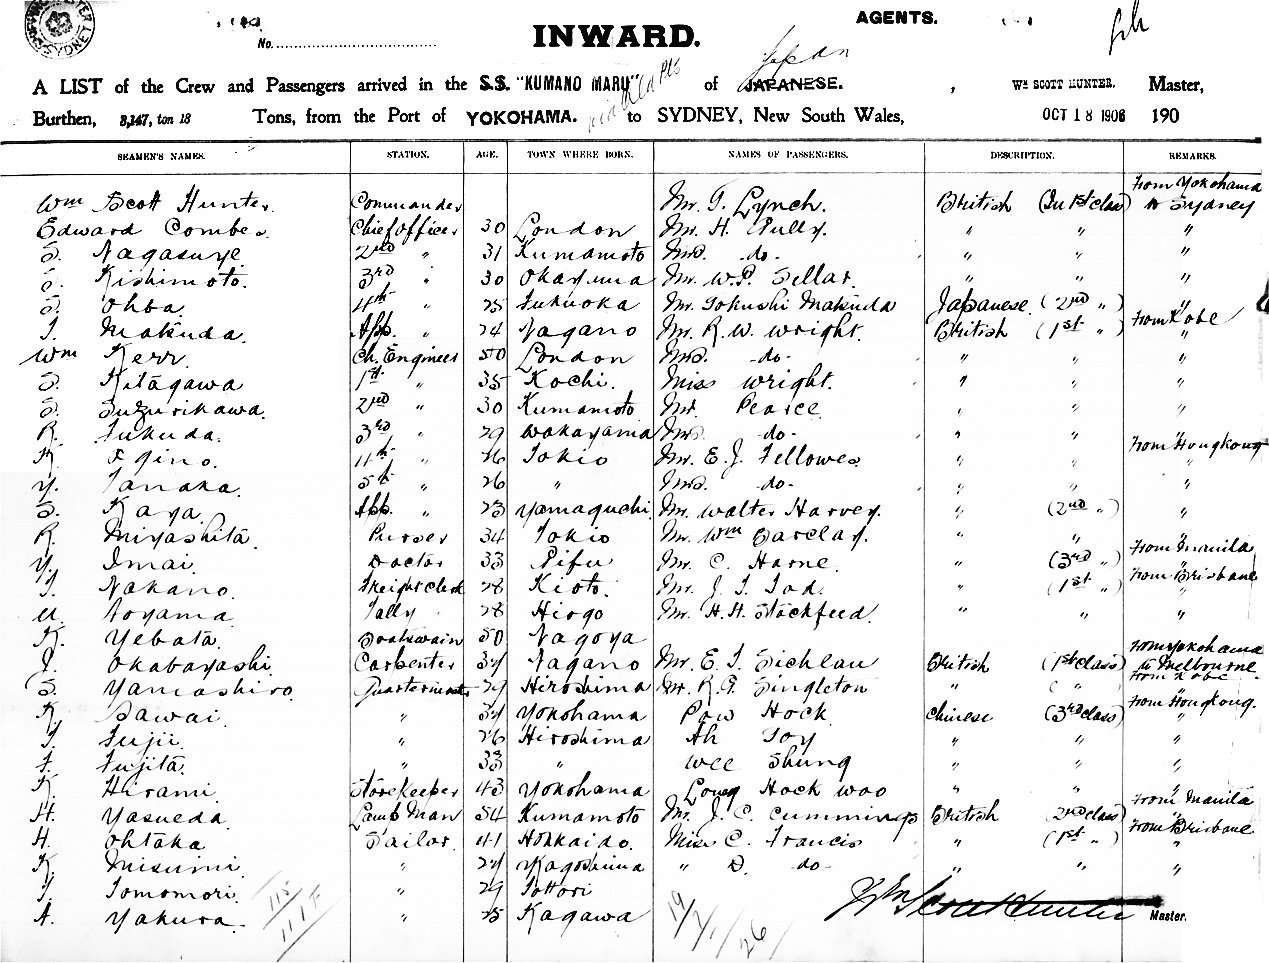 AGENTS.
No.
INWARD.
Japan
A LIST of the Crew and Passengers arrived in the S.S. "KUMANO MARU" of JAPANESE. , Wm SCOTT HUNTER. Master,
Burthen, 3,147, ton 18 Tons, from the Port of YOKOHAMA. to SYDNEY, New South Wales, OCT 18 1906 190
SEAMEN'S NAMES. STATION. AGE. TOWN WHERE BORN. NAMES OF PASSENGERS. DESCRIPTION. REMARKS.
from Yokohama
Wm Scott Hunter. Commander Mr. T. Lynch. British (In 1st class) to Sydney
Edward Combes. Chief officer 30 London Mr. H. Pully. " " "
S. Nagasuye 2nd " 31 Kumamoto Mrs. do. " " "
S. Kishimoto. 3rd " 30 Okayama Mr. W.P. Sellar. " " "
S. Ohba. 4th " 25 Fukuoka Mr. Tokushi Makuda Japanese (2nd ") "
from Kobe
T. Makuda. App. " 24 Nagano Mr. R.W. Wright. British (1st ") "
Wm Kerr. Ch. Engineer 50 London Mrs. do. " " "
S. Kitagawa 1st " 35 Kochi. Miss Wright. " " "
S. Suzurikawa. 2nd " 30 Kumamoto Mr. Pearce " " "
R. Fukuda. 3rd " 29 Wakayama Mrs. do. " " "
from Hongkong
K. Ogino. 4th " 26 Tokio Mr. E. J. Fellowes " " "
Y. Tanaka. 5th " 26 " Mrs. do. " " "
S. Kaya. App. " 23 Yamaguchi. Mr. Walter Harvey. " (2nd ") "
R. Miyashita. Purser 34 Tokio Mr. Wm Barclay. " " "
from Manila
Y. Imai. Doctor 33 Gifu Mr. C. Horne. " (3rd ")
from Brisbane
T. Nakano. Freight Clerk 28 Kioto. Mr. J. T. Tod. " (1st ")
U. Aoyama. Tally 28 Hiogo Mr. H. H. Stockfeed. " " "
K. Yebata. Boatswain 50 Nagoya
from Yokohama
J. Okabayashi. Carpenter 34 Nagano Mr. E. T. Sichlau British (1st class) to Melbourne
from Kobe
S. Yamashiro Quartermaster 29 Hiroshima Mr. R. G. Singleton " ( " )
from Hongkong.
K. Sawai. " 34 Yokohama Pow Hock Chinese (3rd class) "
T. Fujii. " 26 Hiroshima Ah Toy " " "
F. Fujita. " 33 " Wee Shung " " "
K. Hirami. Storekeeper 43 Yokohama Long Hock Woo " " "
from Manila
H. Yasueda. Lamp Man 54 Kumamoto Mr. J. C. Cummings British (2nd class)
from Brisbane
H. Ohtaka Sailor. 41 Hokkaido. Miss C. Francis " (1st ") "
K. Misumi. " 27 Kagoshima " D. do. " " "
T. Tomomori. " 29 Tottori
A. Yakura. " 25 Kagawa Wm Scott Hunter Master.
115
111 F